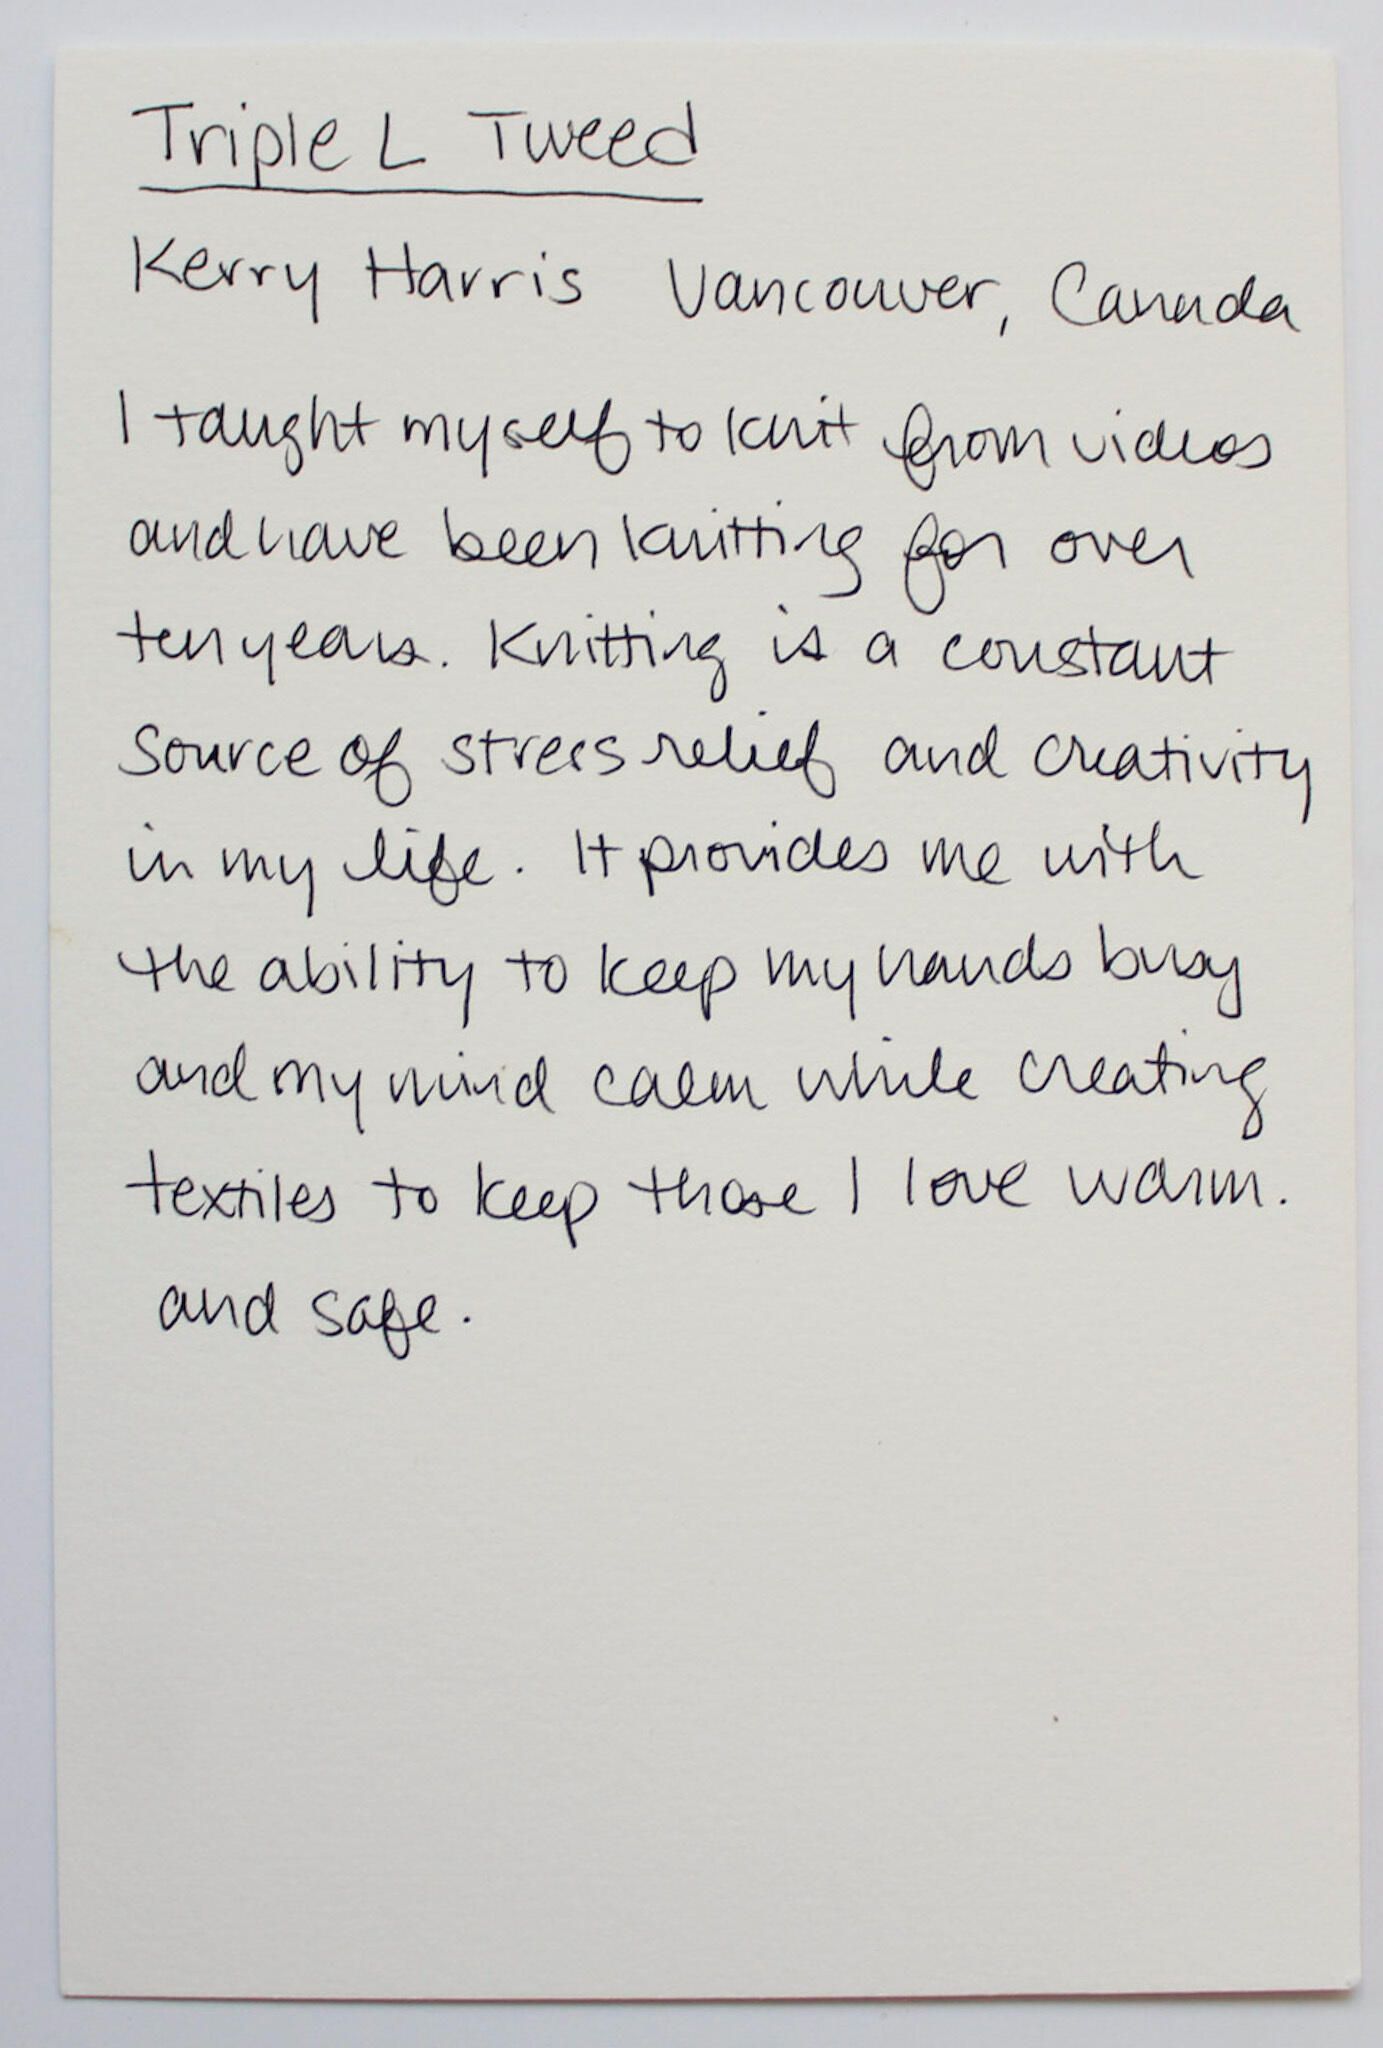 Triple L Tweed
Kerry Harris Vancouver, Canada
I taught myself to knit from videos
and have been knitting for over
ten years. Knitting is a constant
source of stress relief and creativity
in my life. It provides me with
the ability to keep my hands busy
and my mind calm while creating
textiles to keep those I love warm.
and safe.